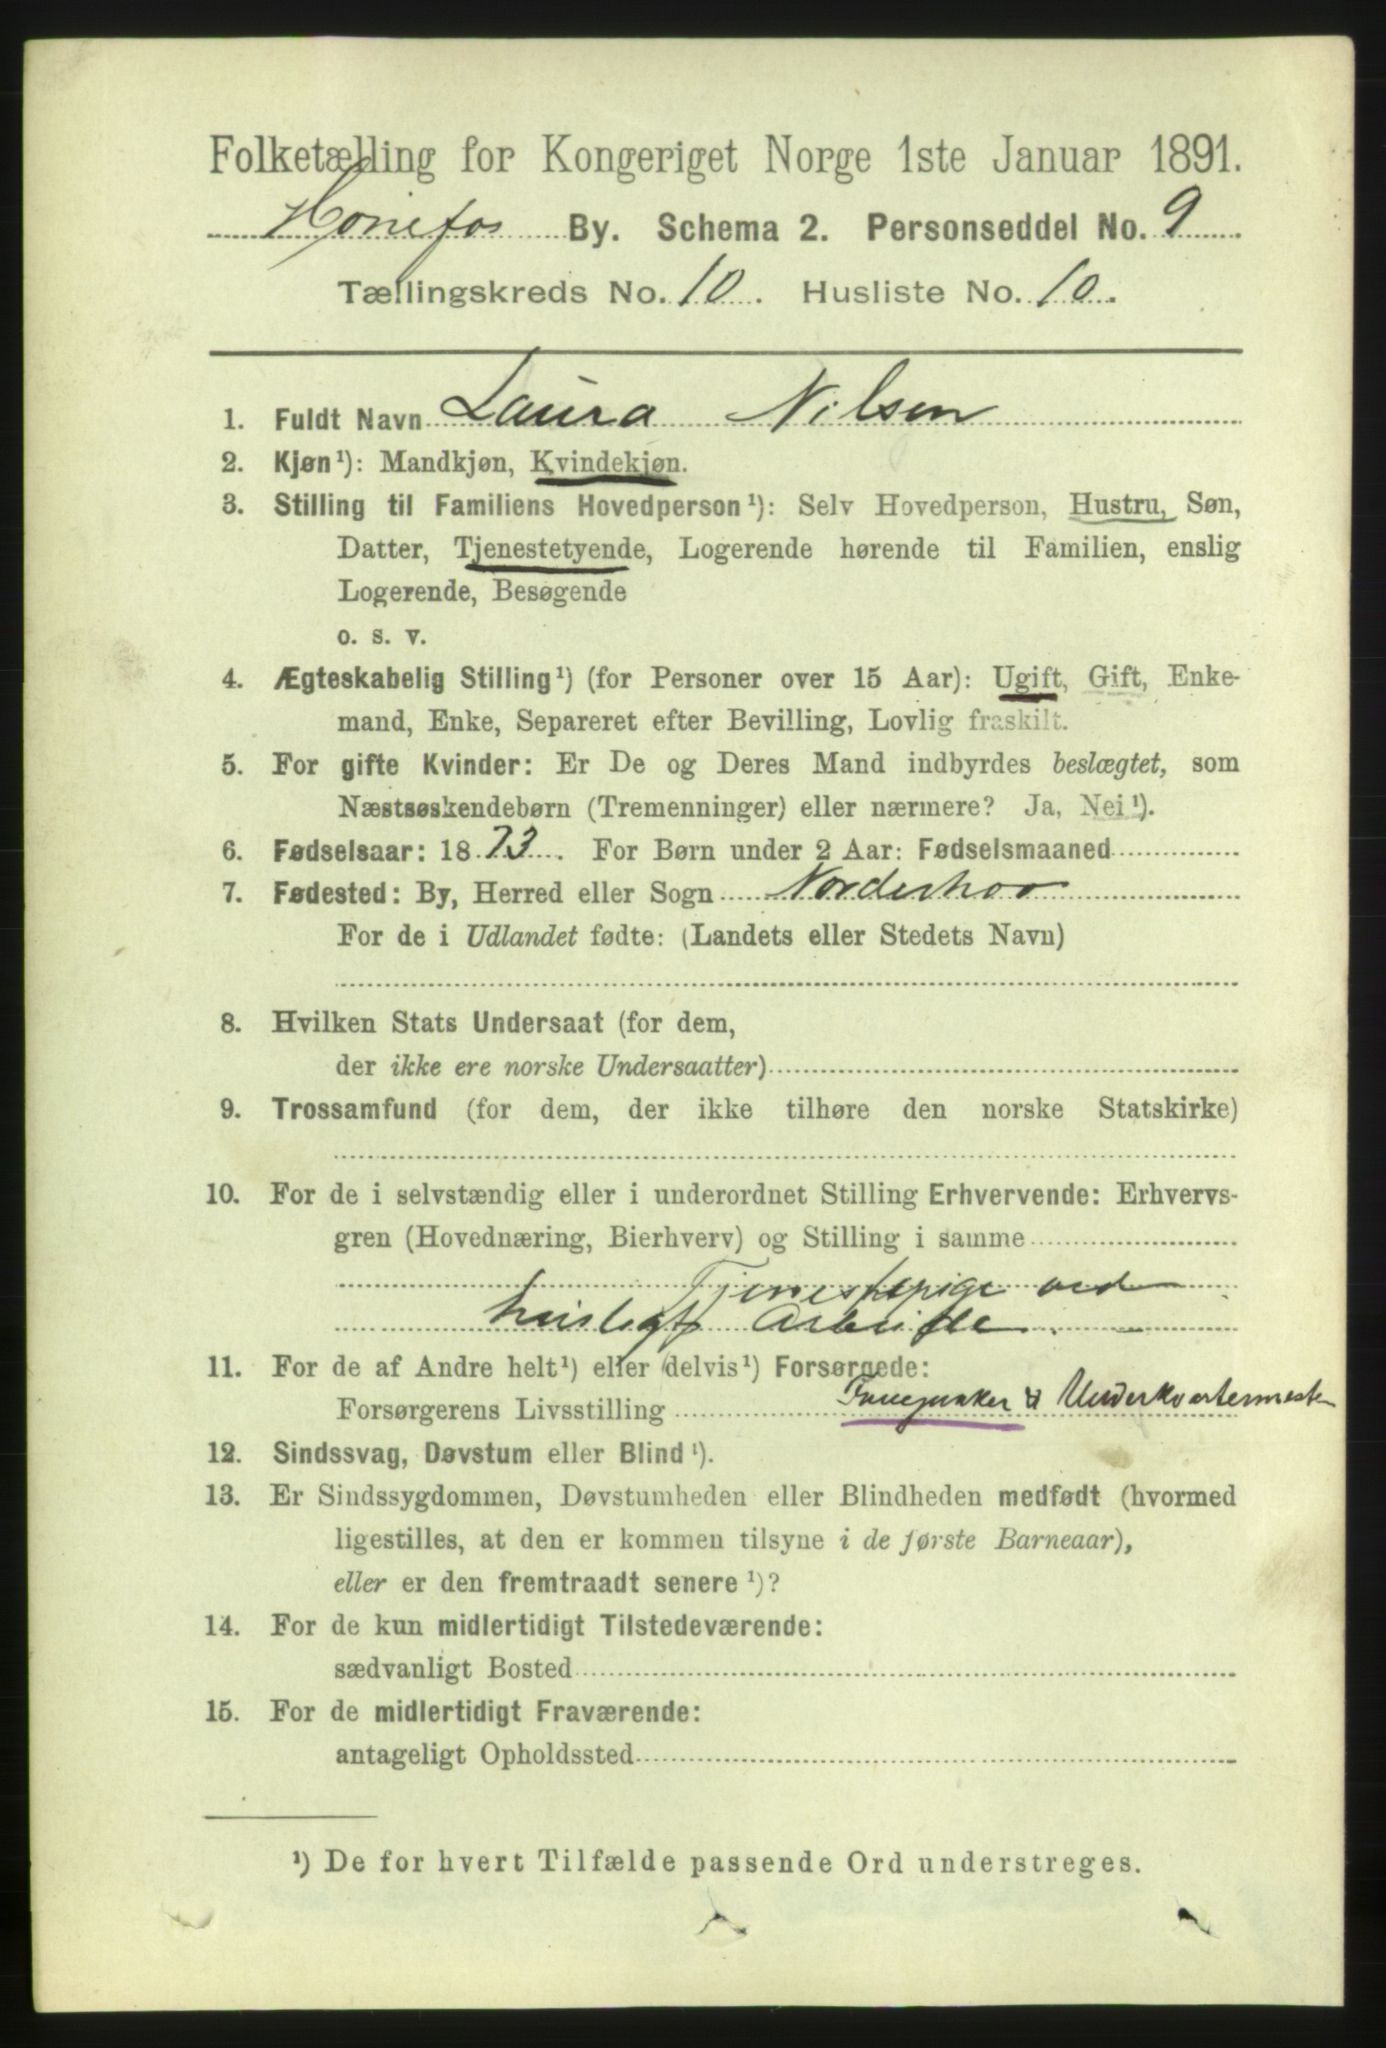 Folketælling for Kongeriget Norge 1ste Januar 1891.
Hønefos By. Schema 2. Personseddel No. 9
Tællingskreds No. 10. Husliste No. 10.
1. Fuldt Navn Laura Nilsen
2. Kjøn¹): Mandkjøn, Kvindekjøn.
3. Stilling til Familiens Hovedperson¹): Selv Hovedperson, Hustru, Søn,
Datter, Tjenestetyende, Logerende hørende til Familien, enslig
Logerende, Besøgende
o. s. v.
4. Ægteskabelig Stilling¹) (for Personer over 15 Aar): Ugift, Gift, Enke-
mand, Enke, Separeret efter Bevilling, Lovlig fraskilt.
5. For gifte Kvinder: Er De og Deres Mand indbyrdes beslægtet, som
Næstsøskendebørn (Tremenninger) eller nærmere? Ja, Nei¹).
6. Fødselsaar: 1873. For Børn under 2 Aar: Fødselsmaaned
7. Fødested: By, Herred eller Sogn Norderhov
For de i Udlandet fødte: (Landets eller Stedets Navn)
8. Hvilken Stats Undersaat (for dem,
der ikke ere norske Undersaatter)
9. Trossamfund (for dem, der ikke tilhøre den norske Statskirke)
10. For de i selvstændig eller i underordnet Stilling Erhvervende: Erhvervs-
gren (Hovednæring, Bierhverv) og Stilling i samme
Tjenestepige ved
husligt Arbeide.
11. For de af Andre helt¹) eller delvis¹) Forsørgede:
Forsørgerens Livsstilling Fanejunker & Underkvartermester
12. Sindssvag, Døvstum eller Blind¹).
13. Er Sindssygdommen, Døvstumheden eller Blindheden medfødt (hvormed
ligestilles, at den er kommen tilsyne i de første Barneaar),
eller er den fremtraadt senere¹)?
14. For de kun midlertidigt Tilstedeværende:
sædvanligt Bosted
15. For de midlertidigt Fraværende:
antageligt Opholdssted
¹) De for hvert Tilfælde passende Ord understreges.